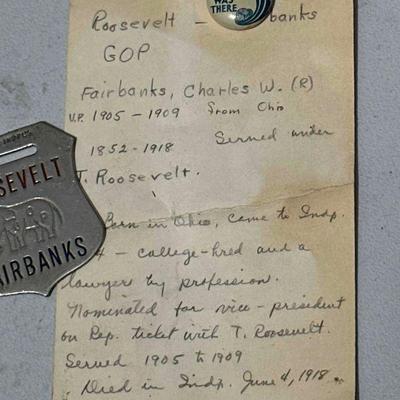 WAS
THERE
Roosevelt - banks
GOP
Fairbanks, Charles W. (R)
V.P. 1905 - 1909 from Ohio
Served under
1852 - 1918
T. Roosevelt.
INDPLS
SEVELT
FAIRBANKS
Born in Ohio, came to Indp.
4 - college-bred and a
lawyer by profession.
Nominated for vice-president
on Rep. ticket with T. Roosevelt.
Served 1905 to 1909
Died in Indp. June 4, 1918.